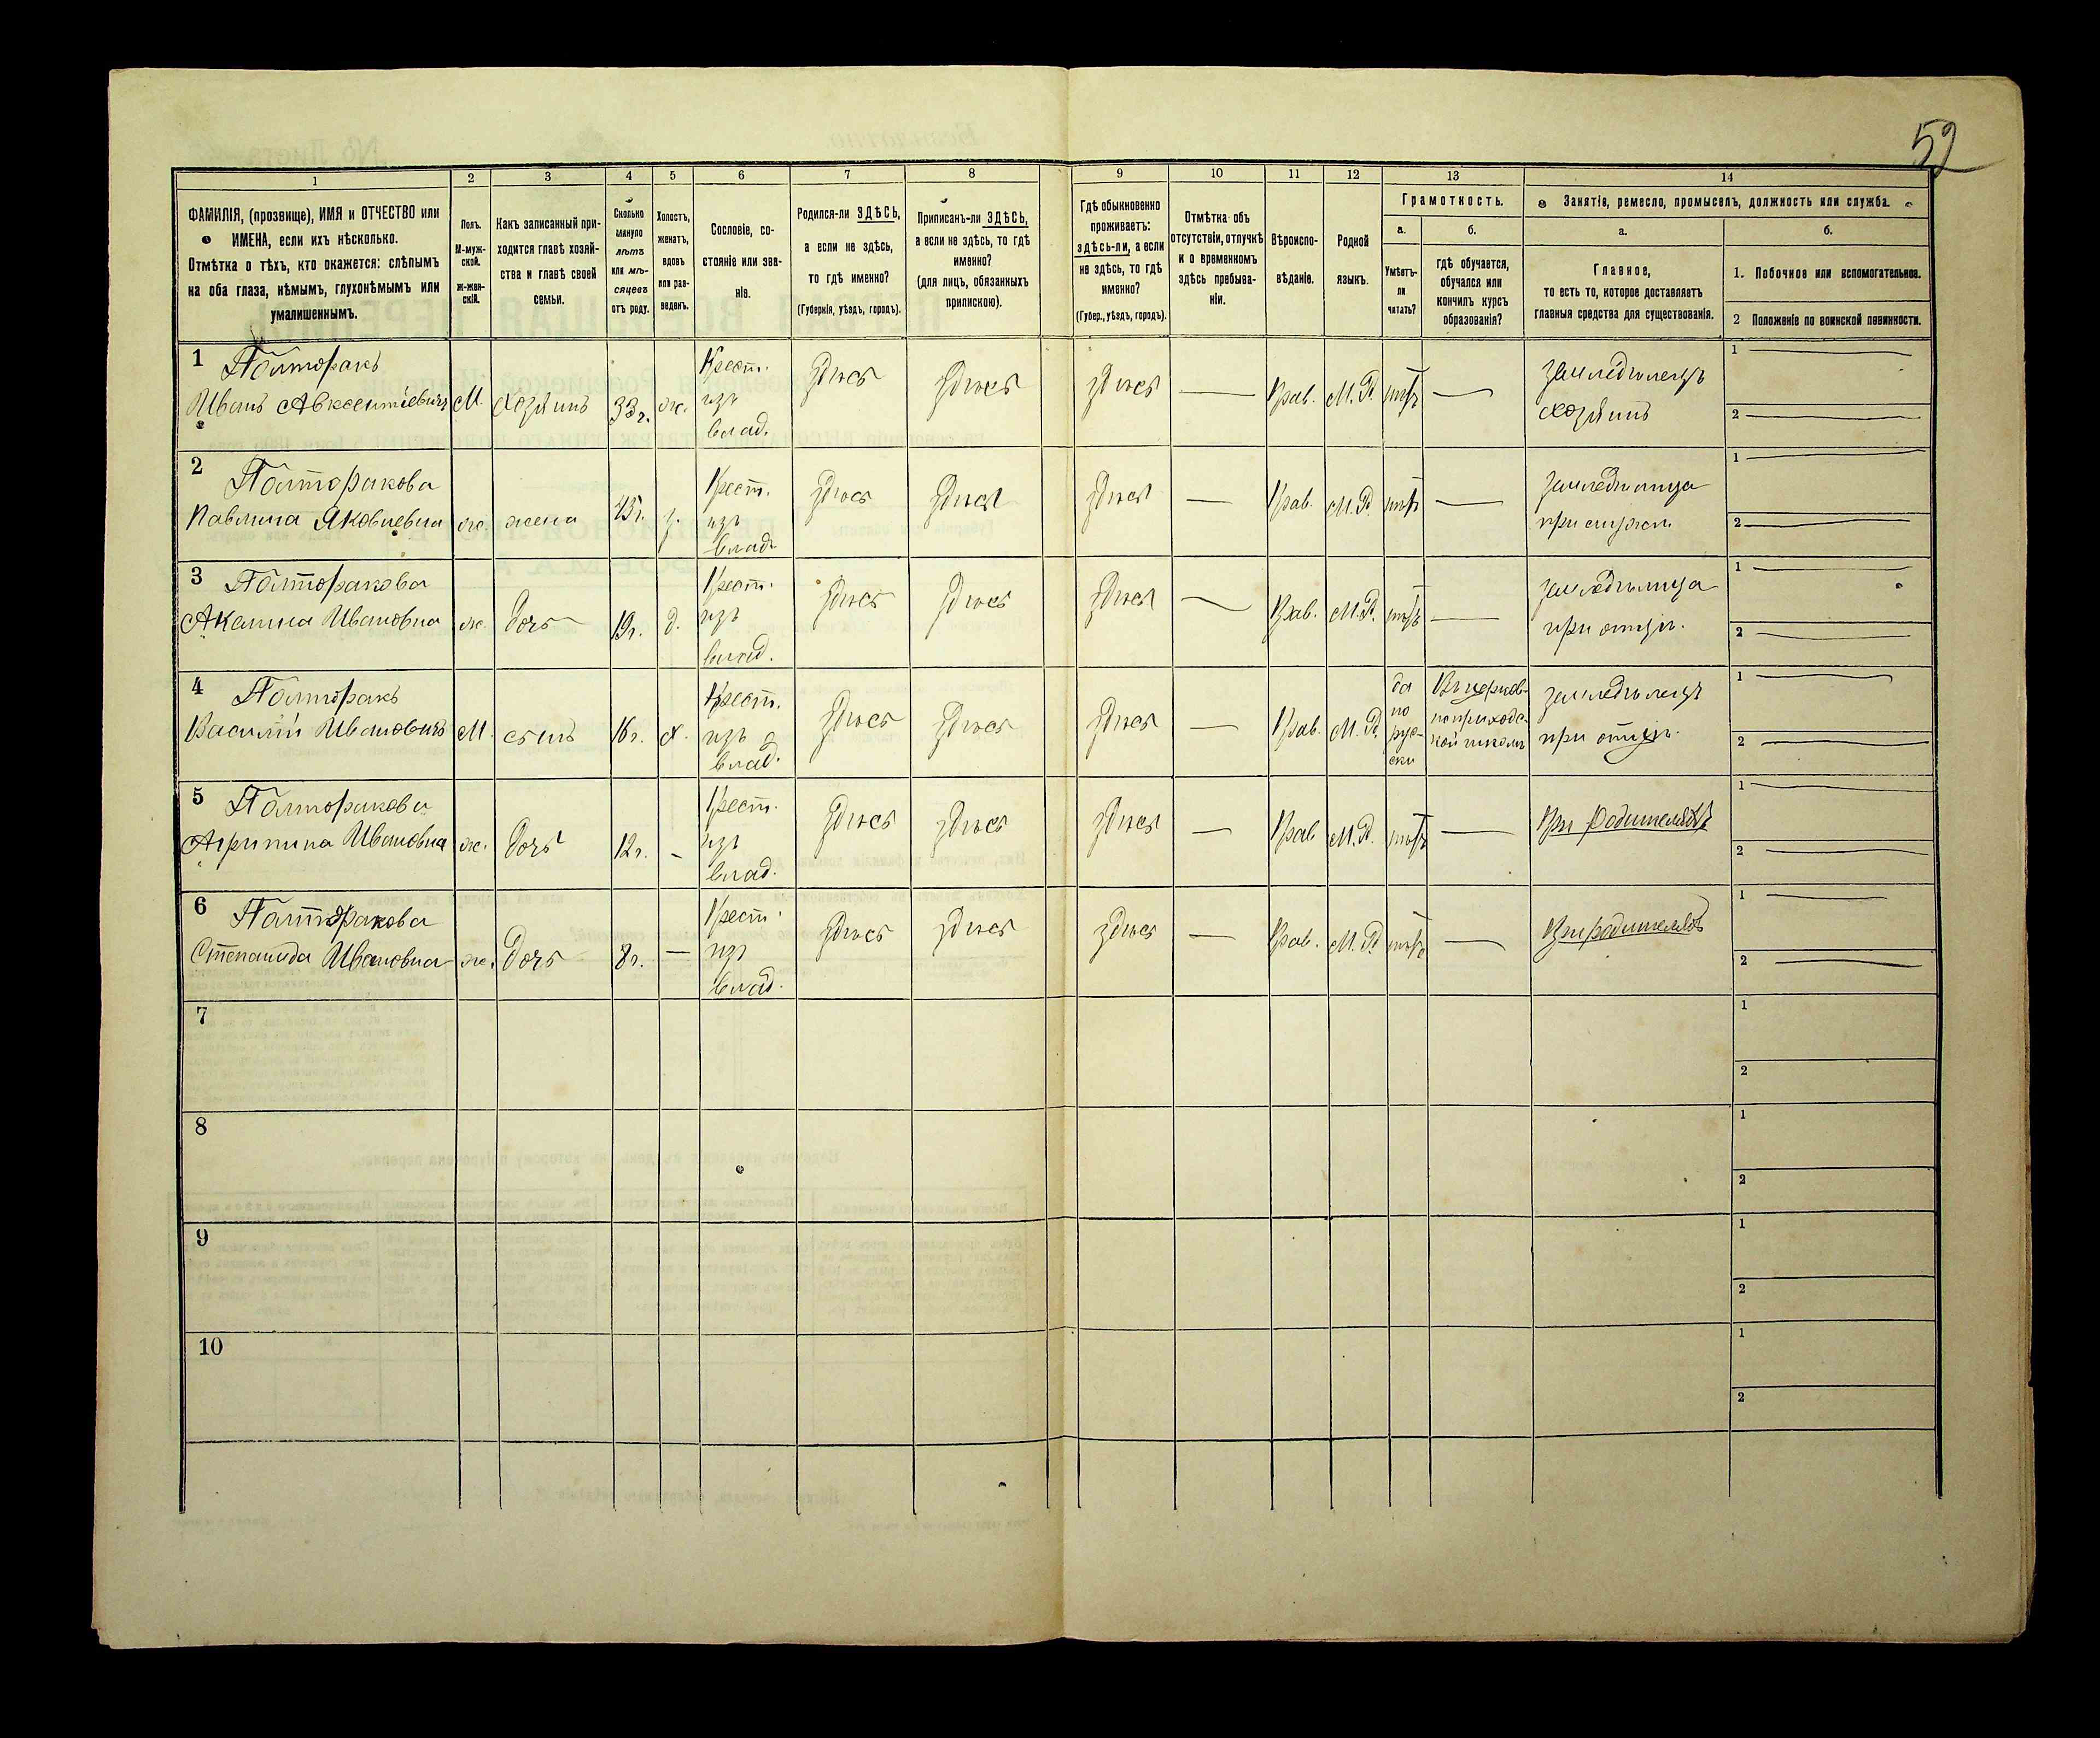 52
1 2 3 4 5 6 7 8 9 10 11 12 13 14
ФАМИЛІЯ, (прозвище), ИМЯ и ОТЧЕСТВО или
ИМЕНА, если ихъ нѣсколько.
Отмѣтка о тѣхъ, кто окажется: слѣпымъ
на оба глаза, нѣмымъ, глухонѣмымъ или
умалишеннымъ.
Полъ.
М-муж-
ской.
ж-жен-
скій.
Какъ записанный при-
ходится главѣ хозяй-
ства и главѣ своей
семьи.
Сколько
минуло
лѣтъ
или мѣ-
сяцевъ
отъ роду.
Холостъ,
женатъ,
вдовъ
или раз-
веденъ.
Сословіе, со-
стояніе или зва-
ніе.
Родился-ли ЗДѢСЬ,
а если не здѣсь,
то гдѣ именно?
(Губернія, уѣздъ, городъ).
Приписанъ-ли ЗДѢСЬ,
а если не здѣсь, то гдѣ
именно?
(для лицъ, обязанныхъ
припискою).
Гдѣ обыкновенно
проживаетъ:
здѣсь-ли, а если
не здѣсь, то гдѣ
именно?
(Губер., уѣздъ, городъ).
Отмѣтка объ
отсутствіи, отлучкѣ
и о временномъ
здѣсь пребыва-
ніи.
Вѣроиспо-
вѣданіе.
Родной
языкъ.
Грамотность.
а.
Умѣетъ-
ли
читать?
б.
гдѣ обучается,
обучался или
кончилъ курсъ
образованія?
Занятіе, ремесло, промыселъ, должность или служба.
а.
Главное,
то есть то, которое доставляетъ
главныя средства для существованія.
б.
1. Побочное или вспомогательное.
2 Положеніе по воинской повинности.
1 Полторакъ
Иванъ Авксентіевичъ М. хозяинъ ж. Крест.
изъ
влад. здѣсь здѣсь здѣсь — Прав. М.Р. нѣтъ — земледѣлецъ
хозяинъ
1 —
2 —
2 Полторакова
Павлина Яковлевна ж. жена з. Крест.
изъ
влад. здѣсь здѣсь здѣсь — Прав. М.Р. нѣтъ — земледѣлица
при мужѣ
1 —
2 —
3 Полторакова
Акалина Ивановна ж. дочь 19 г. д. Крест.
изъ
влад. здѣсь здѣсь здѣсь — Прав. М.Р. нѣтъ — земледѣлица
при отцѣ.
1 —
2 —
4 Полторакъ
Василій Ивановичъ М. сынъ 16 г. х. Крест.
изъ
влад. здѣсь здѣсь здѣсь — Прав. М.Р. да
по
рус-
ски Въ церков-
ноприходс-
кой школѣ земледѣлецъ
при отцѣ.
1 —
2 —
5 Полторакова
Агрипина Ивановна ж. дочь 12 г. — Крест.
изъ
влад. здѣсь здѣсь здѣсь — Прав М.Р. нѣтъ — При родителяхъ
1 —
2 —
6 Полторакова
Степанида Ивановна ж. дочь 8 г. — Крест.
изъ
влад. здѣсь здѣсь здѣсь — Прав. М.Р. нѣтъ — При родителяхъ
1 —
2 —
7 1
2
8 1
2
9 1
2
10 1
2